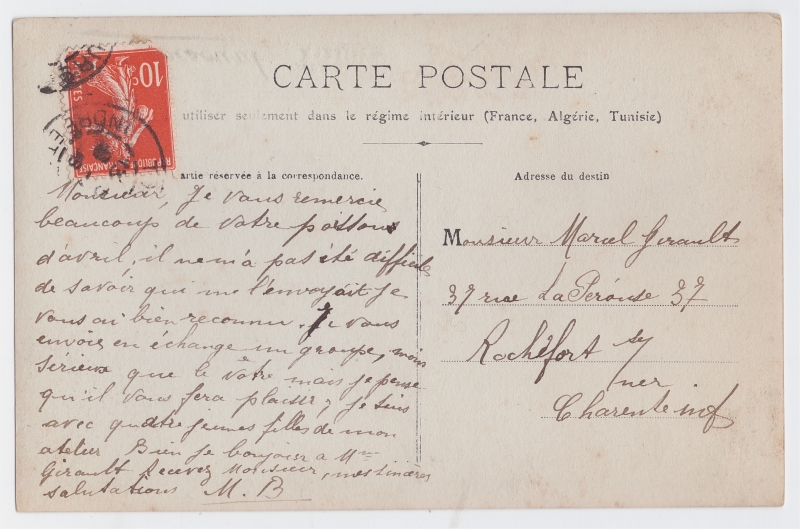 CARTE POSTALE
utiliser seulement dans le régime intérieur (France, Algérie, Tunisie)
artie réservée à la correspondance.
Adresse du destin
10c
POSTES
REPUBLIQUE FRANÇAISE
Monsieur, Je vous remercie
beaucoup de votre poisson
d'avril, il ne m'a pas été difficile
de savoir qui me l'envoyait je
vous ai bien reconnu. Je vous
envoie en échange un groupe, moins
sérieux que le vôtre mais je pense
qu'il vous fera plaisir, je suis
avec quatre jeunes filles de mon
atelier Bien le bonjour a Mme
Girault Recevez Monsieur, mes sincères
salutations M. B
Monsieur Marcel Girault
37 rue La Pérouse 37
Rochefort s/
mer
Charente inf